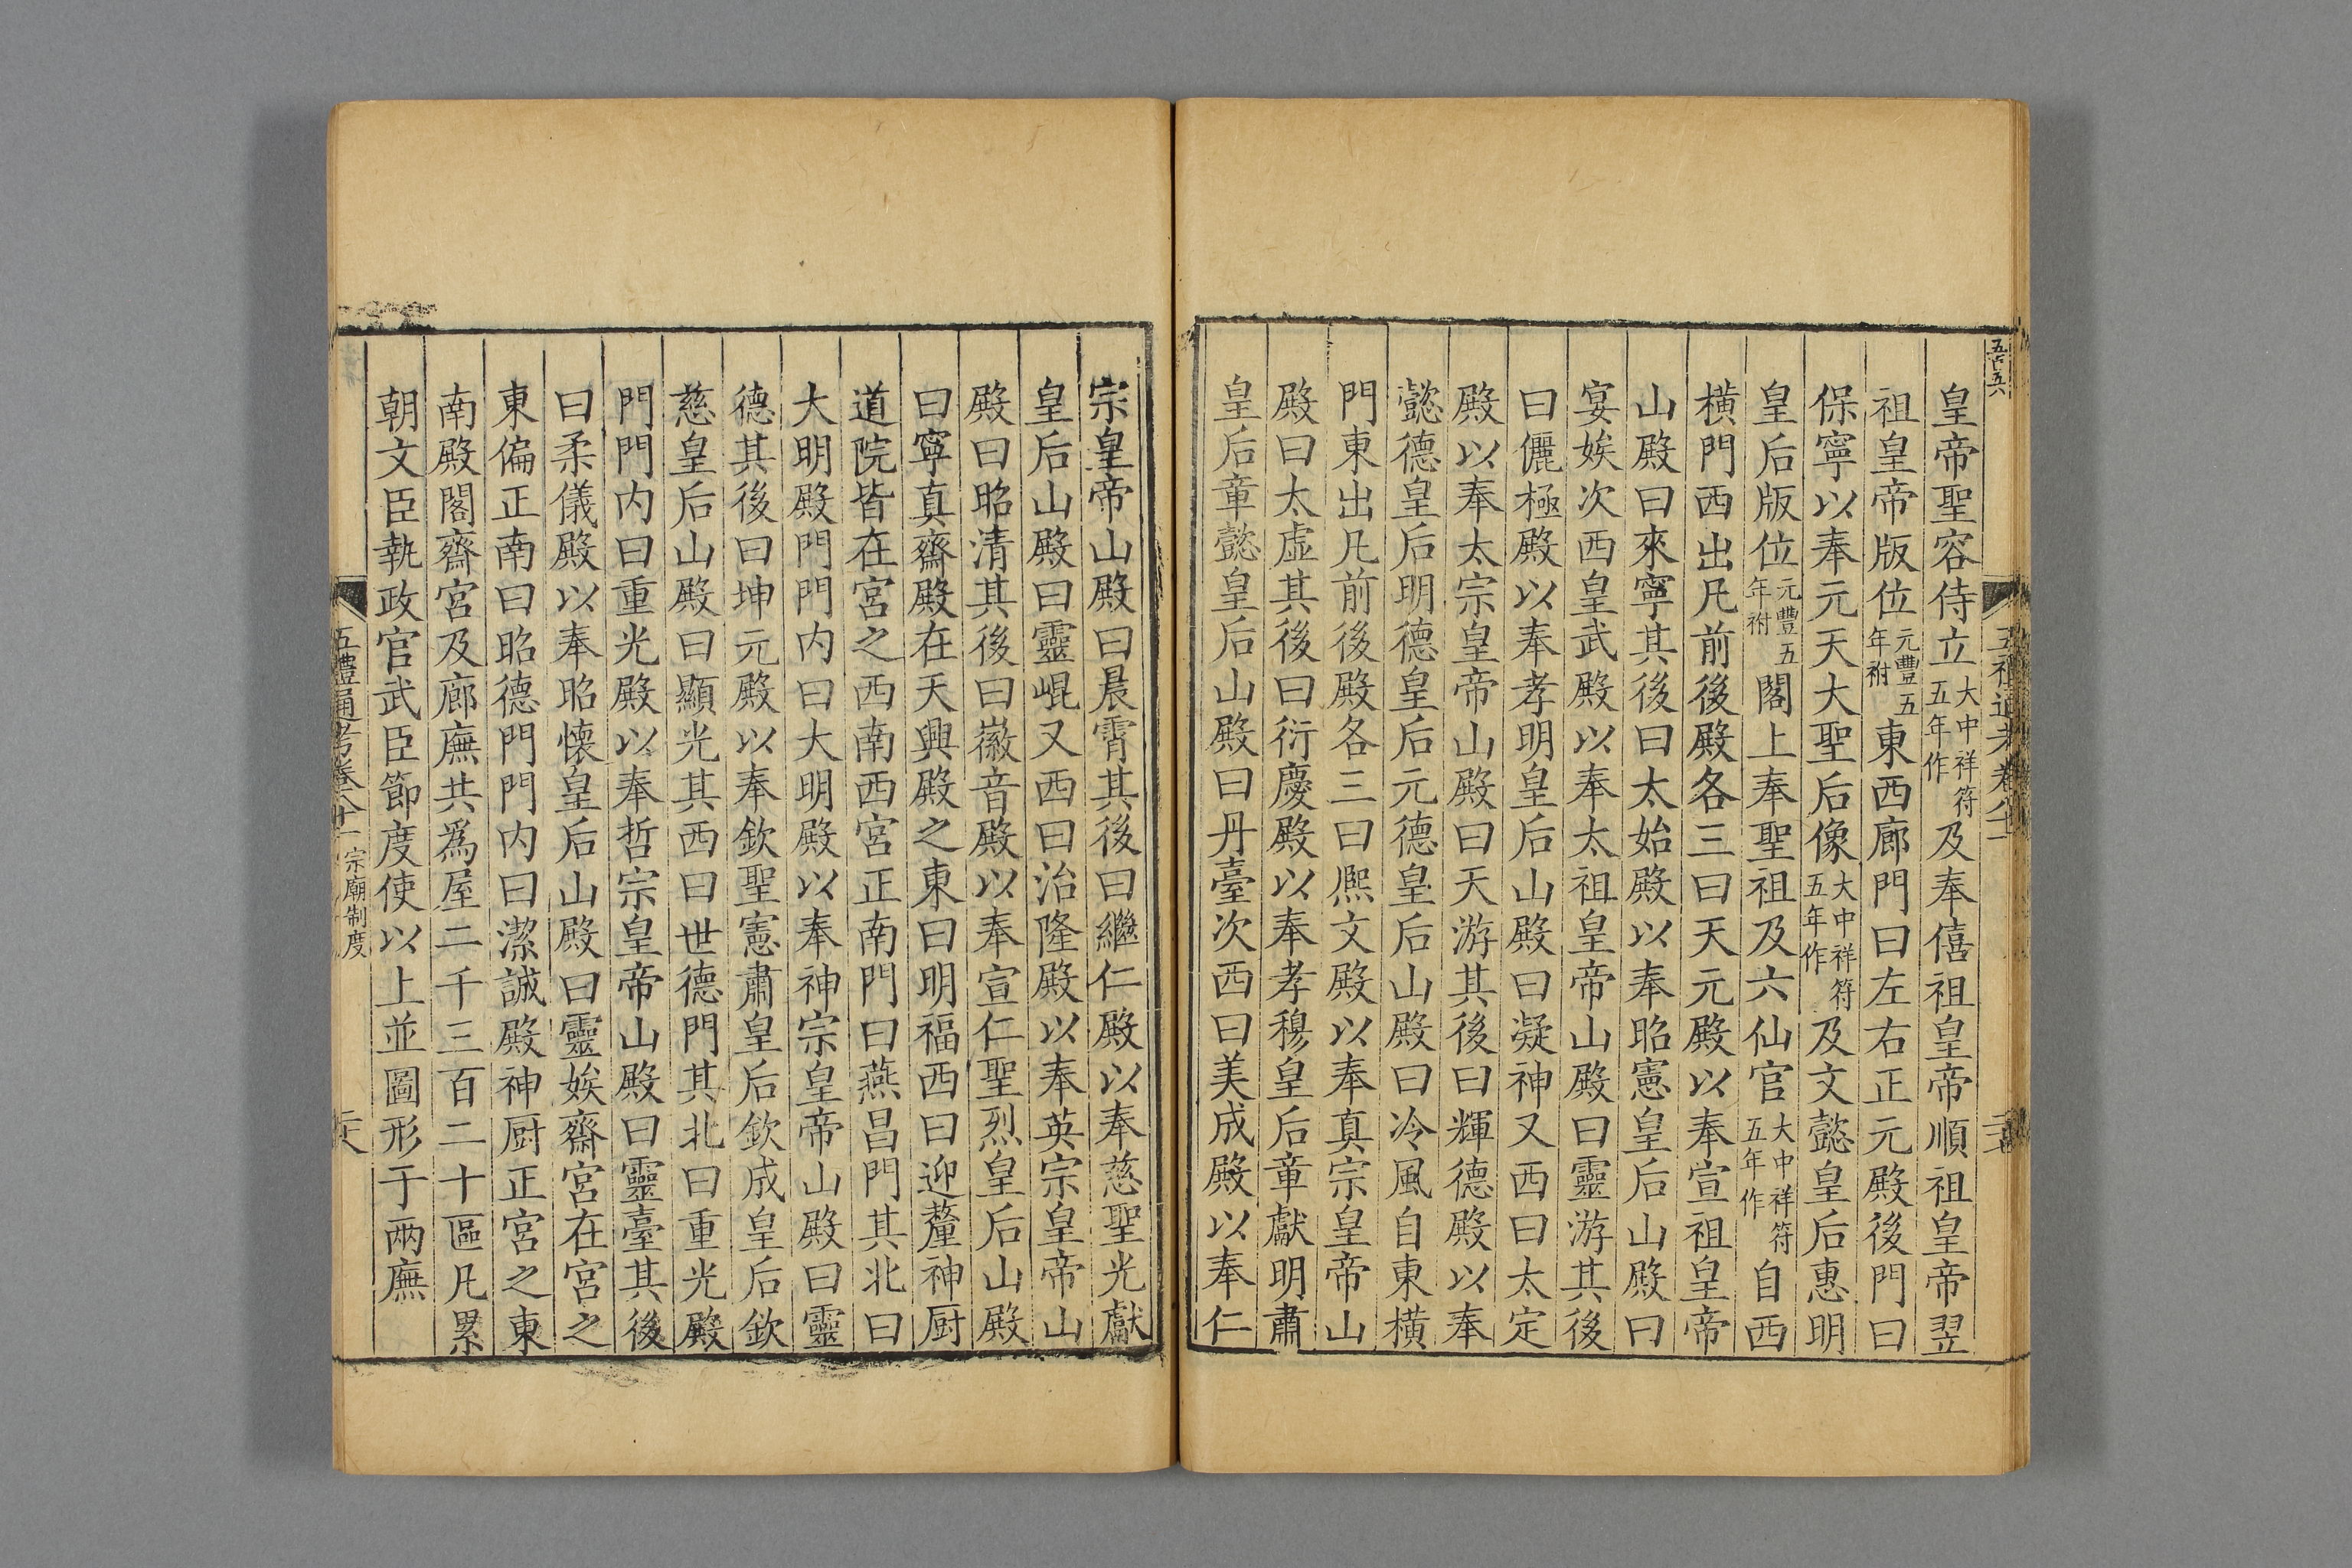 皇帝聖容侍立大中祥符五年作及奉僖祖皇帝順祖皇帝翌
祖皇帝版位元豐五年祔東西廊門曰左右正元殿後門曰
保寧以奉元天大聖后像大中祥符五年作及文懿皇后惠明
皇后版位元豐五年祔閣上奉聖祖及六仙官大中祥符五年作自西
橫門西出凡前後殿各三曰天元殿以奉宣祖皇帝
山殿曰來寧其後曰太始殿以奉昭憲皇后山殿曰
宴娭次西皇武殿以奉太祖皇帝山殿曰靈游其後
曰儷極殿以奉孝明皇后山殿曰凝神又西曰太定
殿以奉太宗皇帝山殿曰天游其後曰輝德殿以奉
懿德皇后明德皇后元德皇后山殿曰冷風自東橫
門東出凡前後殿各三曰熈文殿以奉真宗皇帝山
殿曰太虛其後曰衍慶殿以奉孝穆皇后章獻明肅
皇后章懿皇后山殿曰丹臺次西曰美成殿以奉仁
宗皇帝山殿曰晨霄其後曰繼仁殿以奉慈聖光獻
皇后山殿曰靈崐又西曰治隆殿以奉英宗皇帝山
殿曰昭清其後曰徽音殿以奉宣仁聖烈皇后山殿
曰寧真齋殿在天興殿之東曰明福西曰迎釐神厨
道院皆在宮之西南西宮正南門曰燕昌門其北曰
大明殿門門内曰大明殿以奉神宗皇帝山殿曰靈
德其後曰坤元殿以奉欽聖憲肅皇后欽成皇后欽
慈皇后山殿曰顯光其西曰世德門其北曰重光殿
門門内曰重光殿以奉哲宗皇帝山殿曰靈臺其後
曰柔儀殿以奉昭懷皇后山殿曰靈娭齋宮在宮之
東偏正南曰昭德門門内曰潔誠殿神厨正宮之東
南殿閣齋宮及廊廡共爲屋二千三百二十區凡累
朝文臣執政官武臣節度使以上並圖形于兩廡
五禮通考卷八十一 宗廟制度